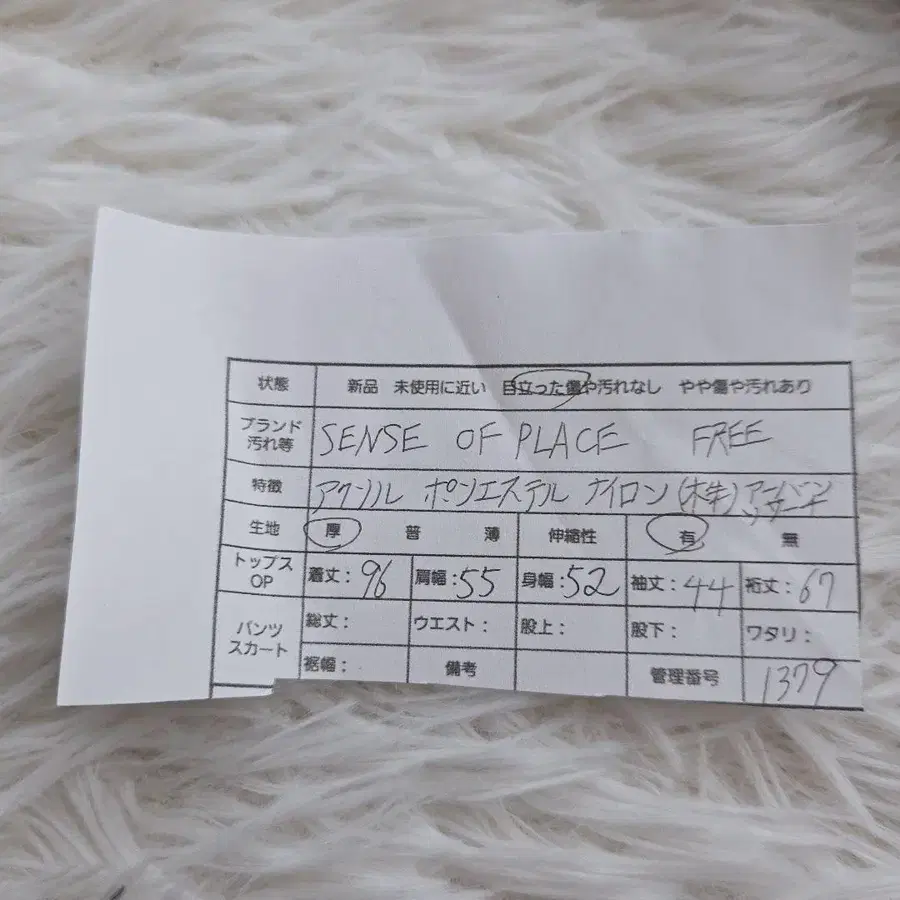 状態 新品 未使用に近い 目立った傷や汚れなし やや傷や汚れあり
ブランド 汚れ等 SENSE OF PLACE FREE
特徴 アクリル ポリエステル ナイロン (株)アーバンリサーチ
生地 厚 普 薄 伸縮性 有 無
トップス OP 着丈：96 肩幅：55 身幅：52 袖丈：44 裄丈：67
パンツ スカート 総丈： ウエスト： 股上： 股下： ワタリ：
裾幅： 備考 管理番号 1379